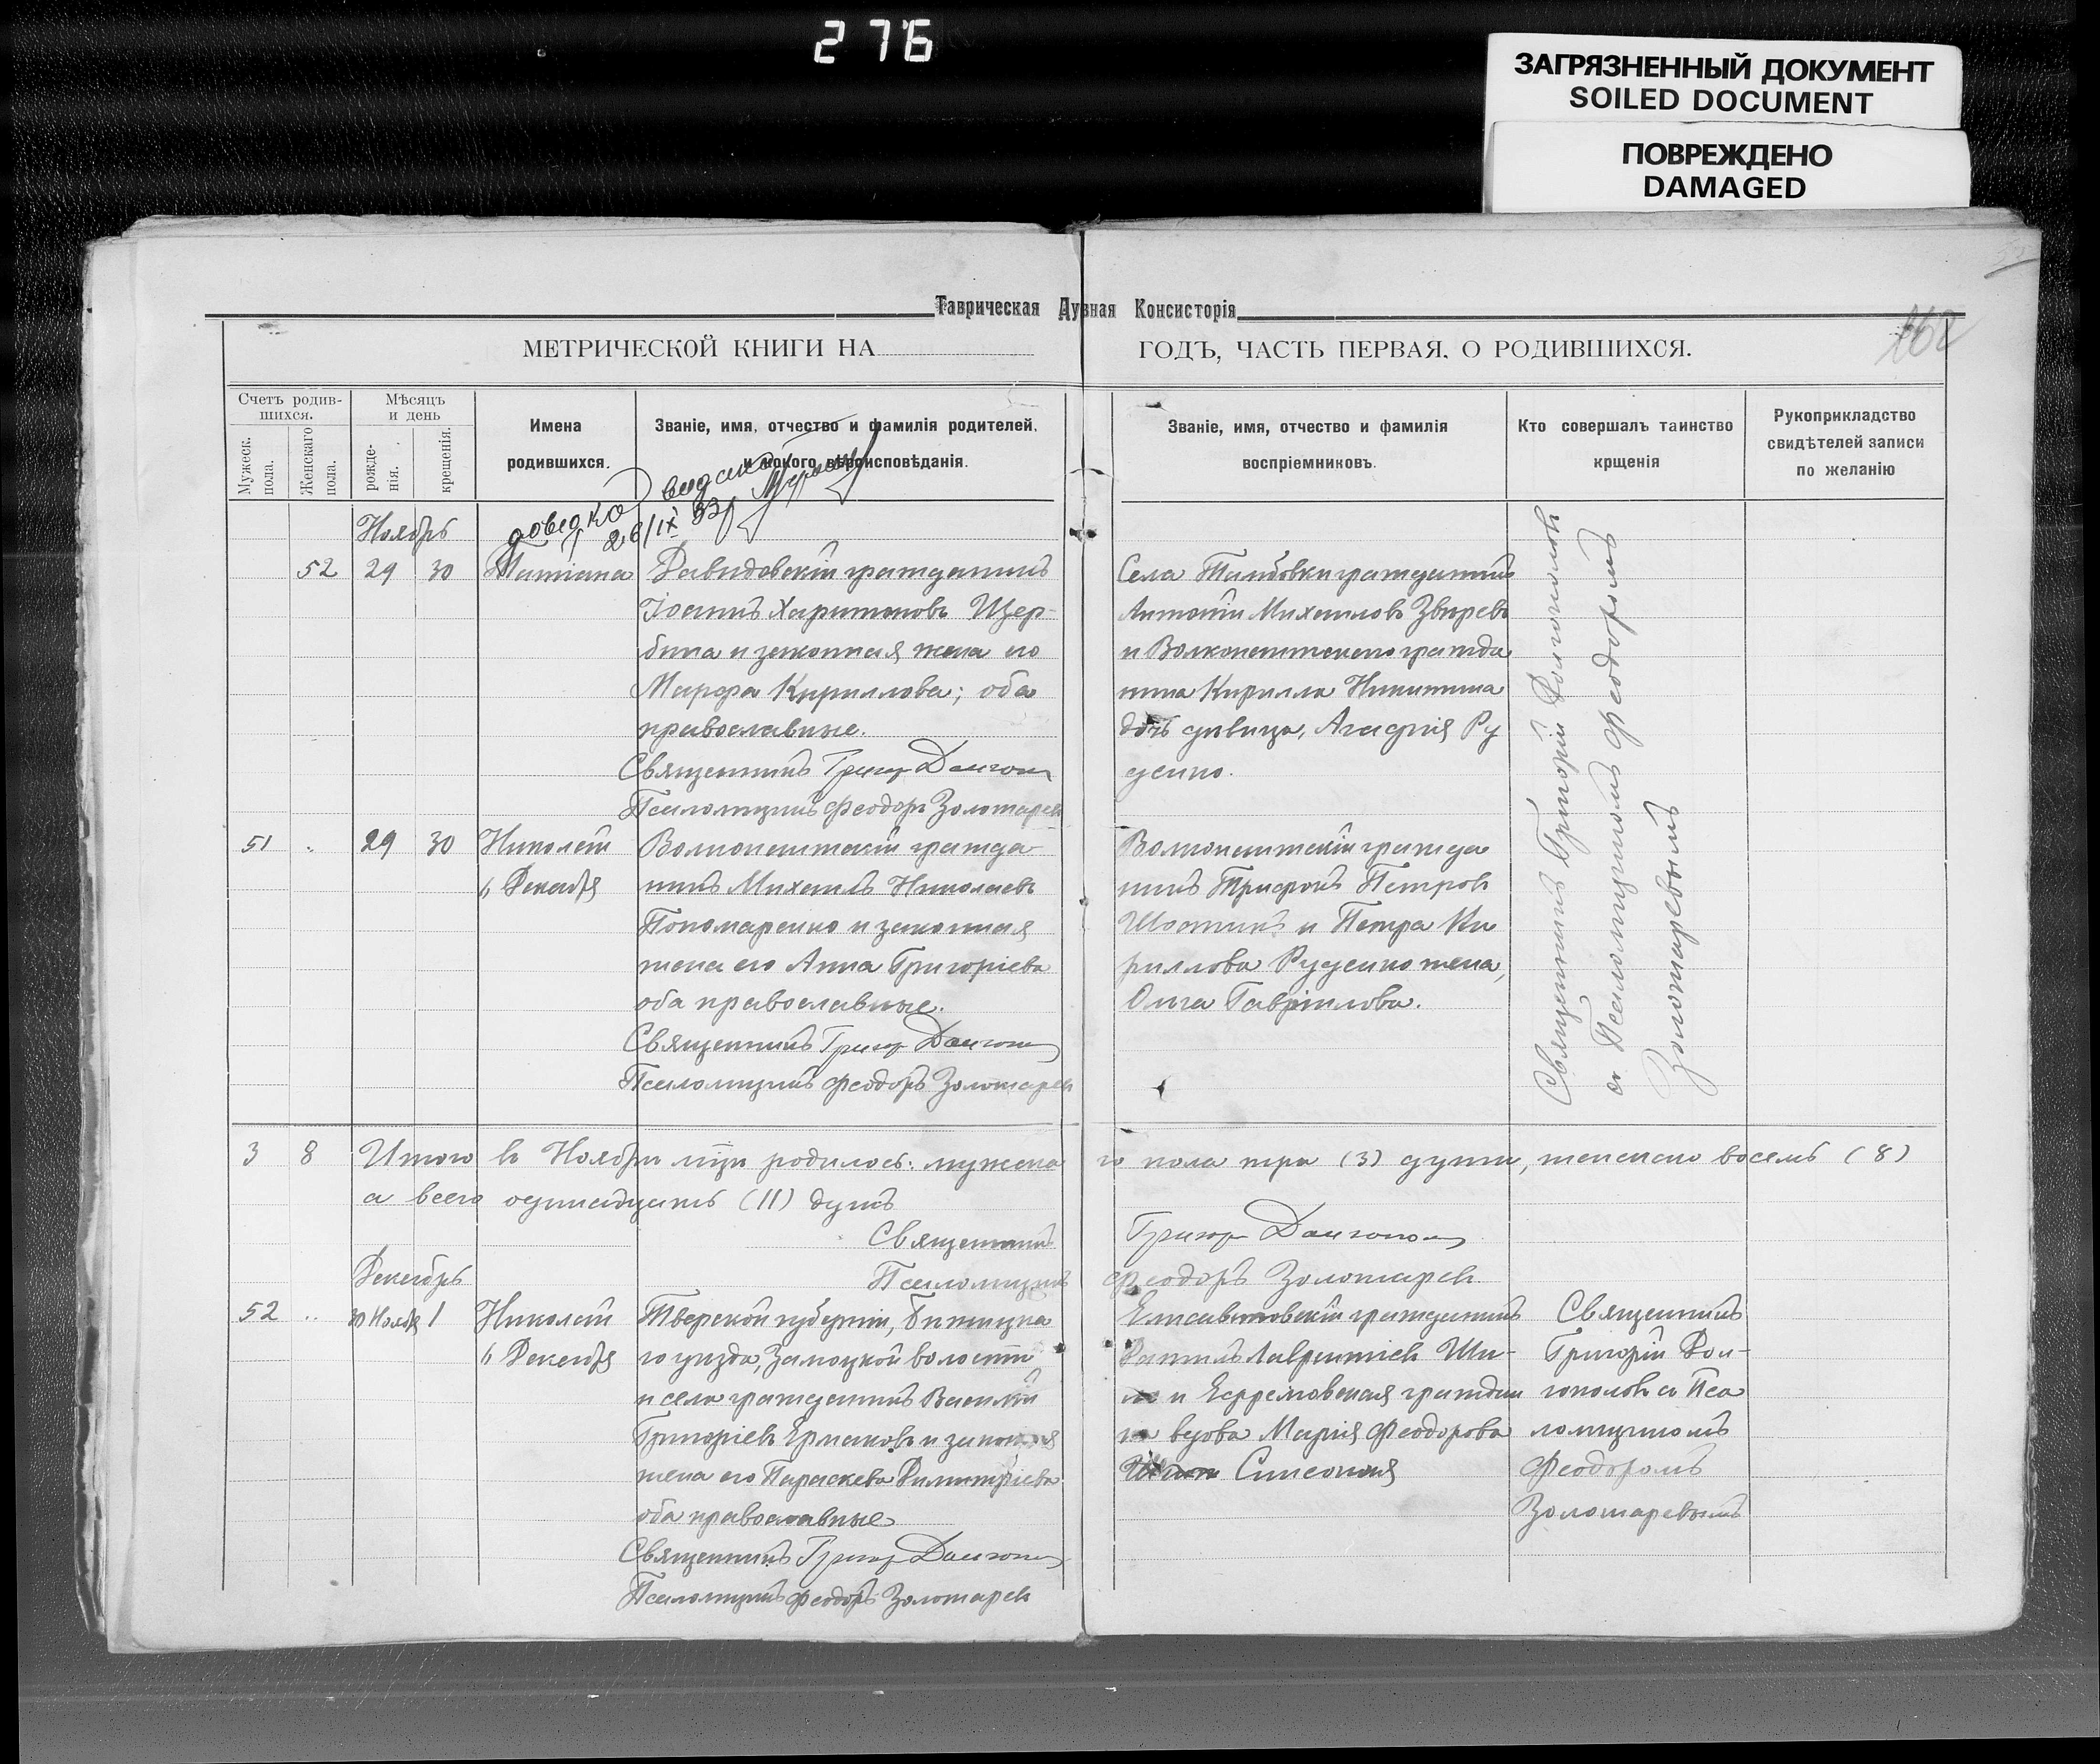 276
ЗАГРЯЗНЕННЫЙ ДОКУМЕНТ
SOILED DOCUMENT
ПОВРЕЖДЕНО
DAMAGED
Таврическая Духная Консисторія
162
МЕТРИЧЕСКОЙ КНИГИ НА ГОДЪ, ЧАСТЬ ПЕРВАЯ, О РОДИВШИХСЯ.
Счетъ родив-
шихся.
Мужеск.
пола.
Женскаго
пола.
Мѣсяцъ
и день
рожде-
нія.
крещенія.
Имена
родившихся.
Званіе, имя, отчество и фамилія родителей,
и какого вѣроисповѣданія.
Званіе, имя, отчество и фамилія
воспріемниковъ.
Кто совершалъ таинство
крщенія
Рукоприкладство
свидѣтелей записи
по желанію
довідка видана
26/IX 33
Ноябрь
52 29 30 Татіана
Давидовскій гражданинъ
Іоаннъ Харитоновъ Щер-
бина и законная жена его
Марфа Кириллова; оба
православные.
Священникъ Григор Долгопол
Псаломщикъ Феодоръ Золотарев
Села Тамбовки гражданинъ
Антоній Михаиловъ Звѣревъ
и гражда
нина Кирилла Никитина
дочь дѣвица, Агафія Ру
денко.
Священникъ Григорій Долгополовъ
съ Псаломщикомъ Феодоромъ
Золотаревымъ
51 „ 29 30 Николай
6 Декабря
гражда-
нинъ Михаилъ Николаевъ
Пономаренко и законная
жена его Анна Григоріева
оба православные.
Священникъ Григор Долгопол
Псаломщикъ Феодоръ Золотарев
гражда
нинъ Трифонъ Петров
и Петра Ки
риллова Руденко жена,
Ольга Гавріилова.
3 8 Итого въ Ноябрѣ мцѣ родилось: мужска го пола три (3) души, женскаго восемь (8)
а всего одинадцать (11) душъ
Священникъ Григор Долгопол
Псаломщикъ Феодоръ Золотарев
Декабрь
52 „ 30 Ноябр 1 Николай
6 Декабря
Тверской губерніи, Бѣжецка
го уѣзда, волости
и села гражданинъ Василій
Григоріевъ Ермаковъ и законная
жена его Параскева Димитріева
оба православные
Священникъ Григор Долгопол
Псаломщикъ Феодоръ Золотарев
Елисаветовскій гражданинъ
Лаврентіев Ши-
и Ефремовская граждан
ка вдова Марія Феодорова
Симеония
Священникъ
Григорій Дол-
гополовъ съ Пса
ломщикомъ
Феодоромъ
Золотаревымъ